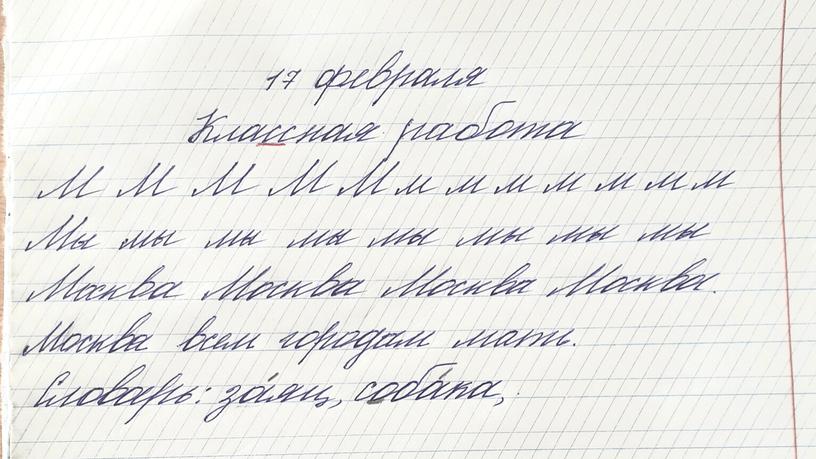 17 февраля
Классная работа
М М М М М м м м м м м м
Мы мы мы мы мы мы мы мы
Москва Москва Москва Москва.
Москва всем городам мать.
Словарь: за́яц, соба́ка,